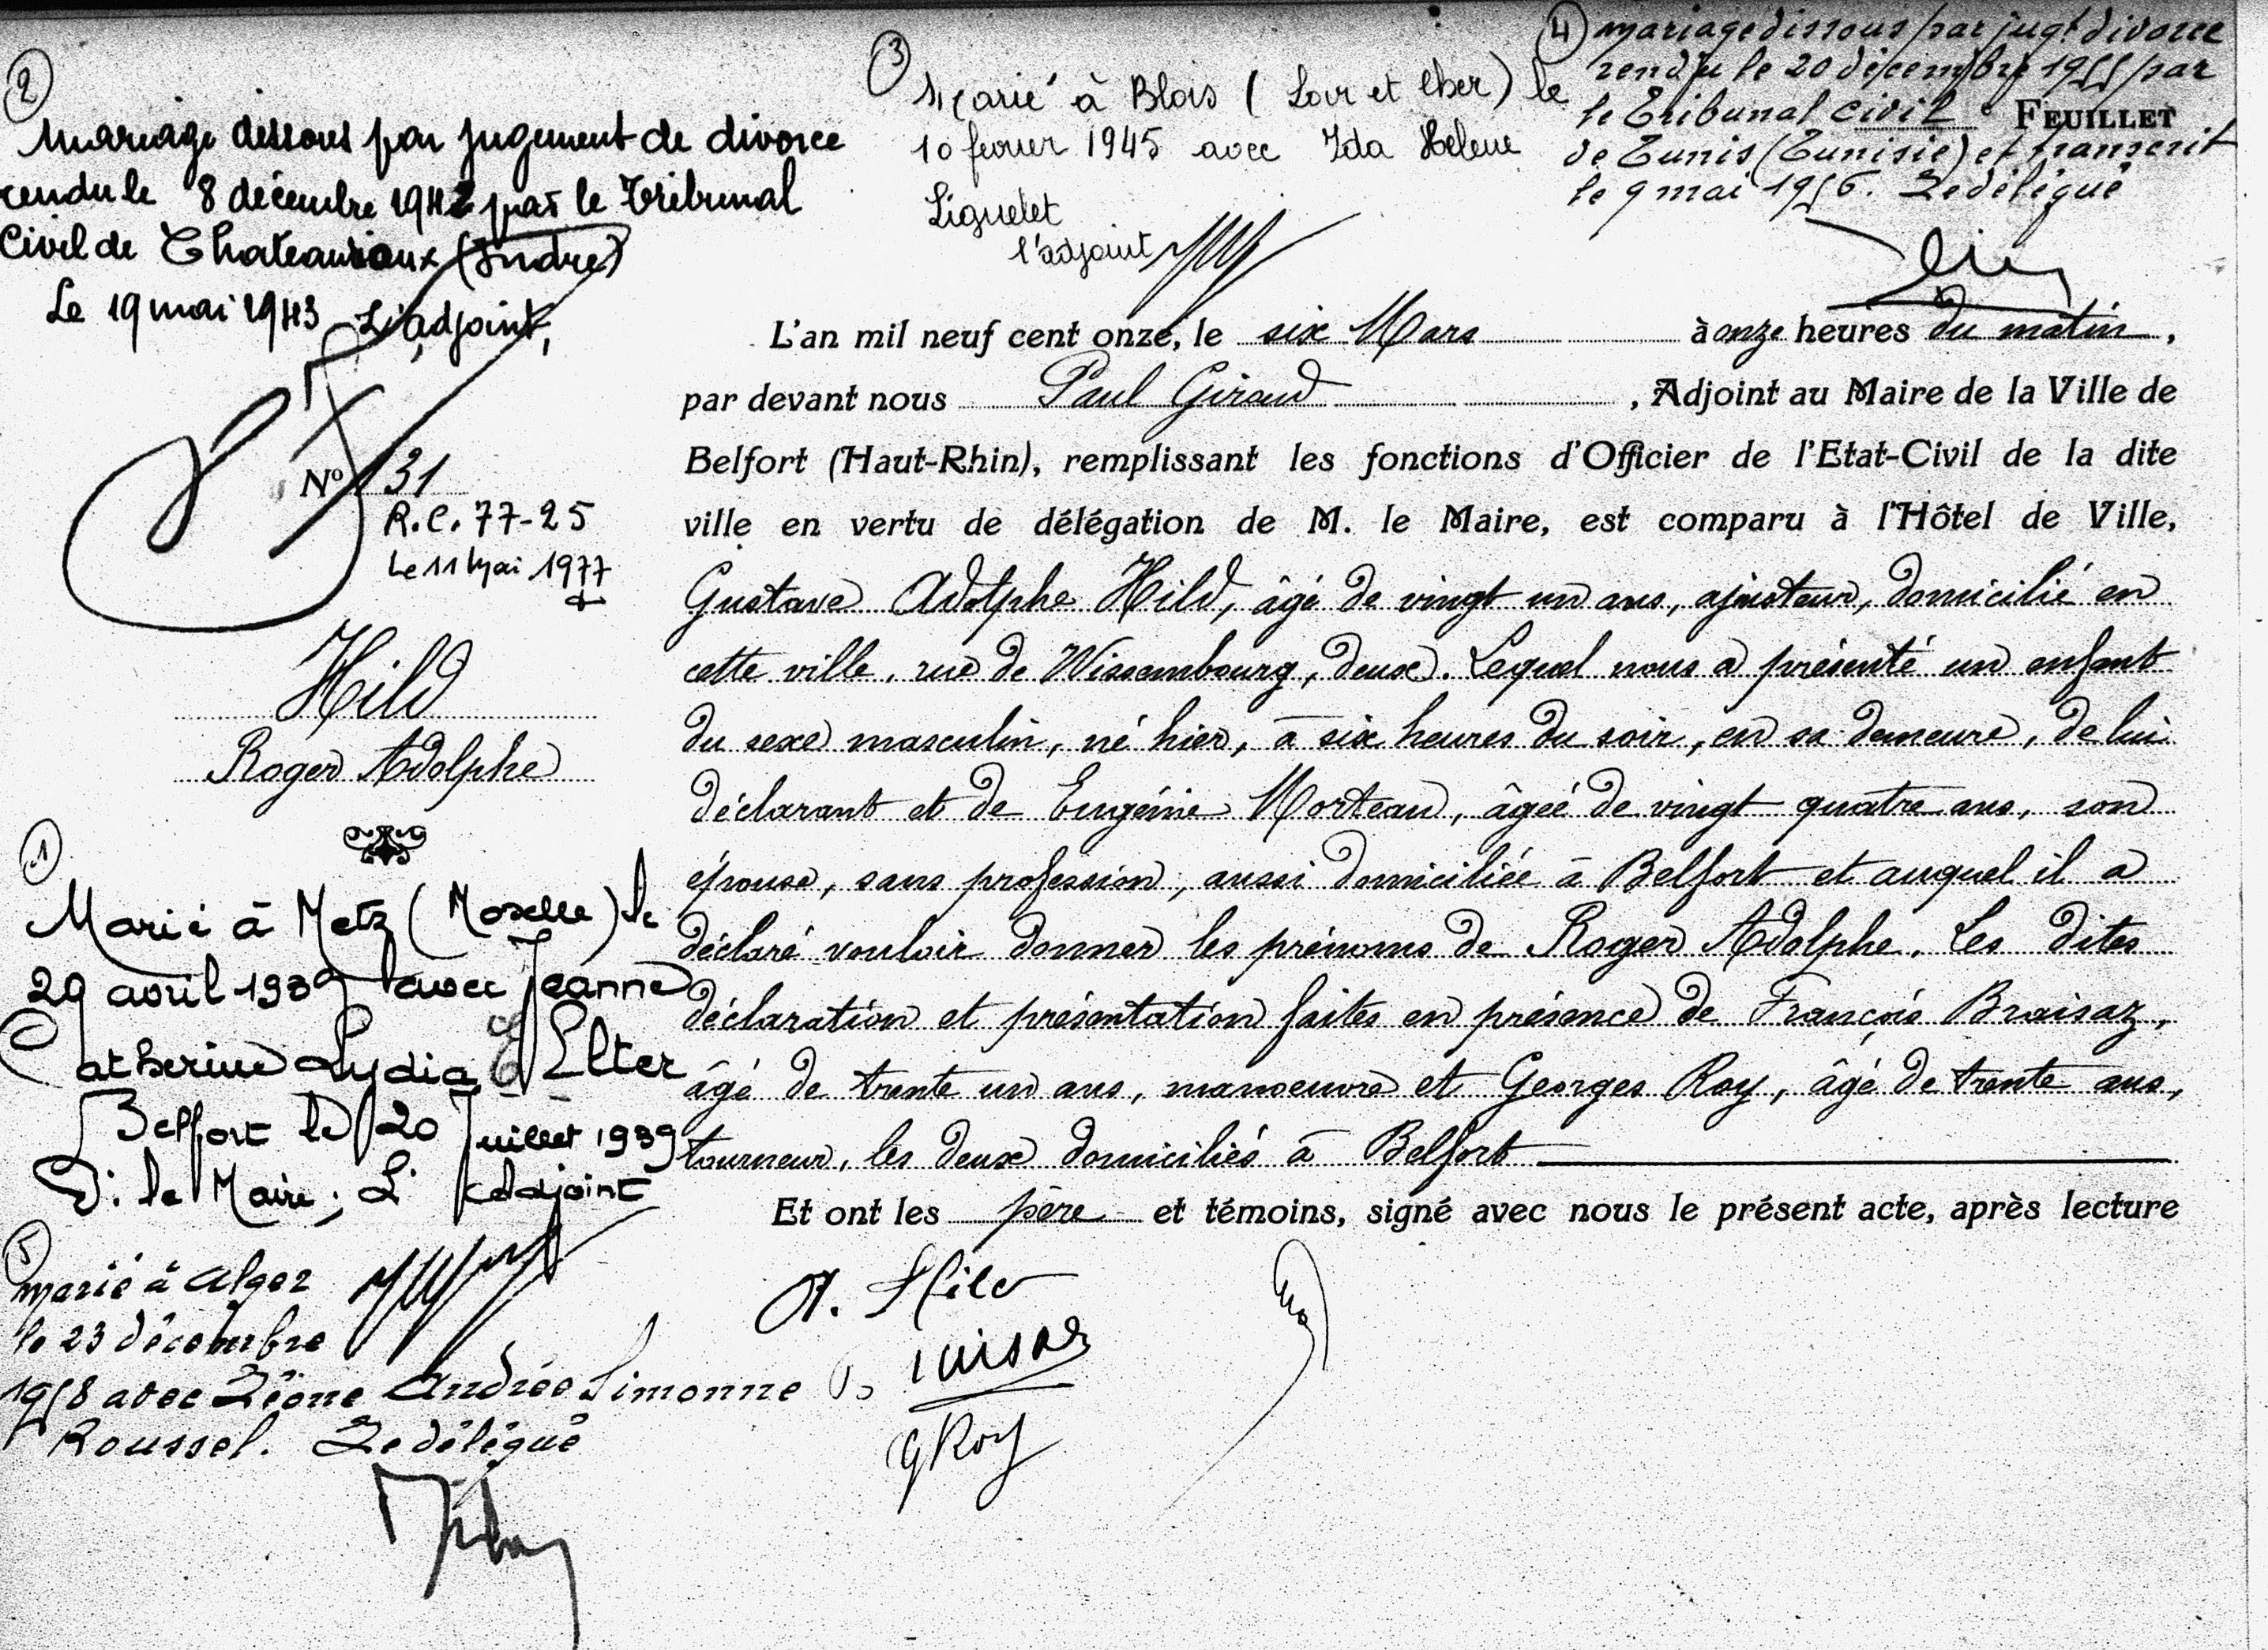 ②
Mariage dissous par jugement de divorce
rendu le 8 décembre 1942 par le Tribunal
Civil de Chateauroux (Indre)
Le 19 mai 1943 L'adjoint,
③
Marié à Blois (Loir et Cher) le
10 fevrier 1945 avec Ida Helene
Liguelet
l'adjoint
④ mariage dissous par jugt divorce
rendu le 20 décembre 1955 par
le Tribunal civil
de Tunis (Tunisie) et transcrit
le 9 mai 1956. Le délégué
FEUILLET
No 131
R.C. 77-25
Le 11 Mai 1977
Hild
Roger Adolphe
①
Marié à Metz (Moselle) le
29 avril 1939 avec Jeanne
Catherine Lydia Elter
Belfort le 20 Juillet 1939
P. le Maire; L'Adjoint
⑤
marié à Alger
le 23 décembre
1958 avec Léone Andrée Simonne
Roussel. Le délégué
L'an mil neuf cent onze, le six Mars à onze heures du matin,
par devant nous Paul Giraud, Adjoint au Maire de la Ville de
Belfort (Haut-Rhin), remplissant les fonctions d'Officier de l'Etat-Civil de la dite
ville en vertu de délégation de M. le Maire, est comparu à l'Hôtel de Ville,
Gustave Adolphe Hild, âgé de vingt un ans, ajusteur, domicilié en
cette ville, rue de Wissembourg, deux. Lequel nous a présenté un enfant
du sexe masculin, né hier, à six heures du soir, en sa demeure, de lui
déclarant et de Eugénie Morteau, âgée de vingt quatre ans, son
épouse, sans profession, aussi domiciliée à Belfort et auquel il a
déclaré vouloir donner les prénoms de Roger Adolphe. Les dites
déclaration et présentation faites en présence de François Braisaz,
âgé de trente un ans, manoeuvre et Georges Roy, âgé de trente ans,
tourneur, les deux domiciliés à Belfort
Et ont les père et témoins, signé avec nous le présent acte, après lecture
A. Hild
G Roy